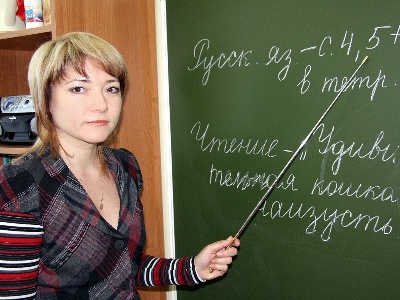 Русск. яз. – с. 4, 5+
в тетр.
Чтение – „Удиви
тельная кошка
наизусть